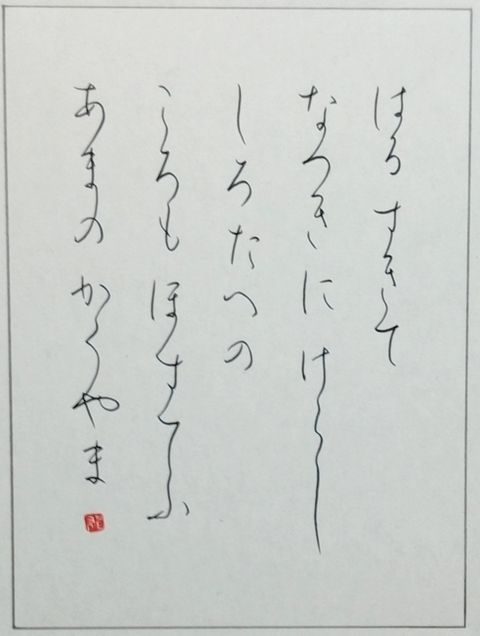 はる すきて
なつきに けらし
しろたへの
ころも ほすてふ
あまの かくやま